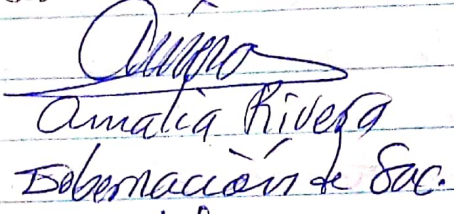 Amalia Rivera
Gobernación de Sac.